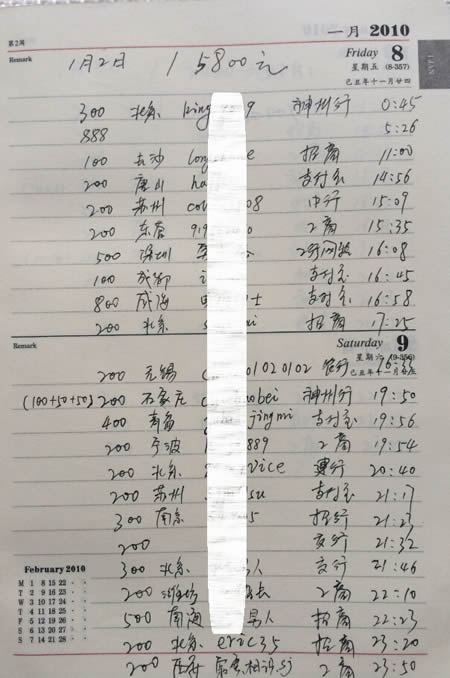 第2周
一月 2010
Remark
Friday 8
星期五 (8-357)
己丑年十一月廿四
JAN
1月2日 15800元
300 北京 king 9 神州行 0:45
888 5:26
100 长沙 long 招商 11:00
200 唐山 ha 支付宝 14:56
200 苏州 co 08 中行 15:09
200 东莞 919 工商 15:35
500 深圳 16:08
100 成都 支付宝 16:45
800 威海 士 支付宝 16:58
200 北京 招商 17:25
Remark
Saturday 9
星期六 (9-356)
200 无锡 0102 0102 农行
(100+50+50) 200 石家庄 bei 神州行 19:50
400 青岛 jingmi 支付宝 19:56
200 宁波 889 工商 19:54
200 北京 vice 20:40
200 苏州 su 支付宝 21:17
300 南京 招行 21:23
200 交行 21:32
300 北京 人 交行 21:46
200 潍坊 工商 22:10
500 南海 男人 招商 22:23
200 北京 eric35 招商 23:20
200 工商 23:50
February 2010
M 1 8 15 22
T 2 9 16 23
W 3 10 17 24
T 4 11 18 25
F 5 12 19 26
S 6 13 20 27
S 7 14 21 28